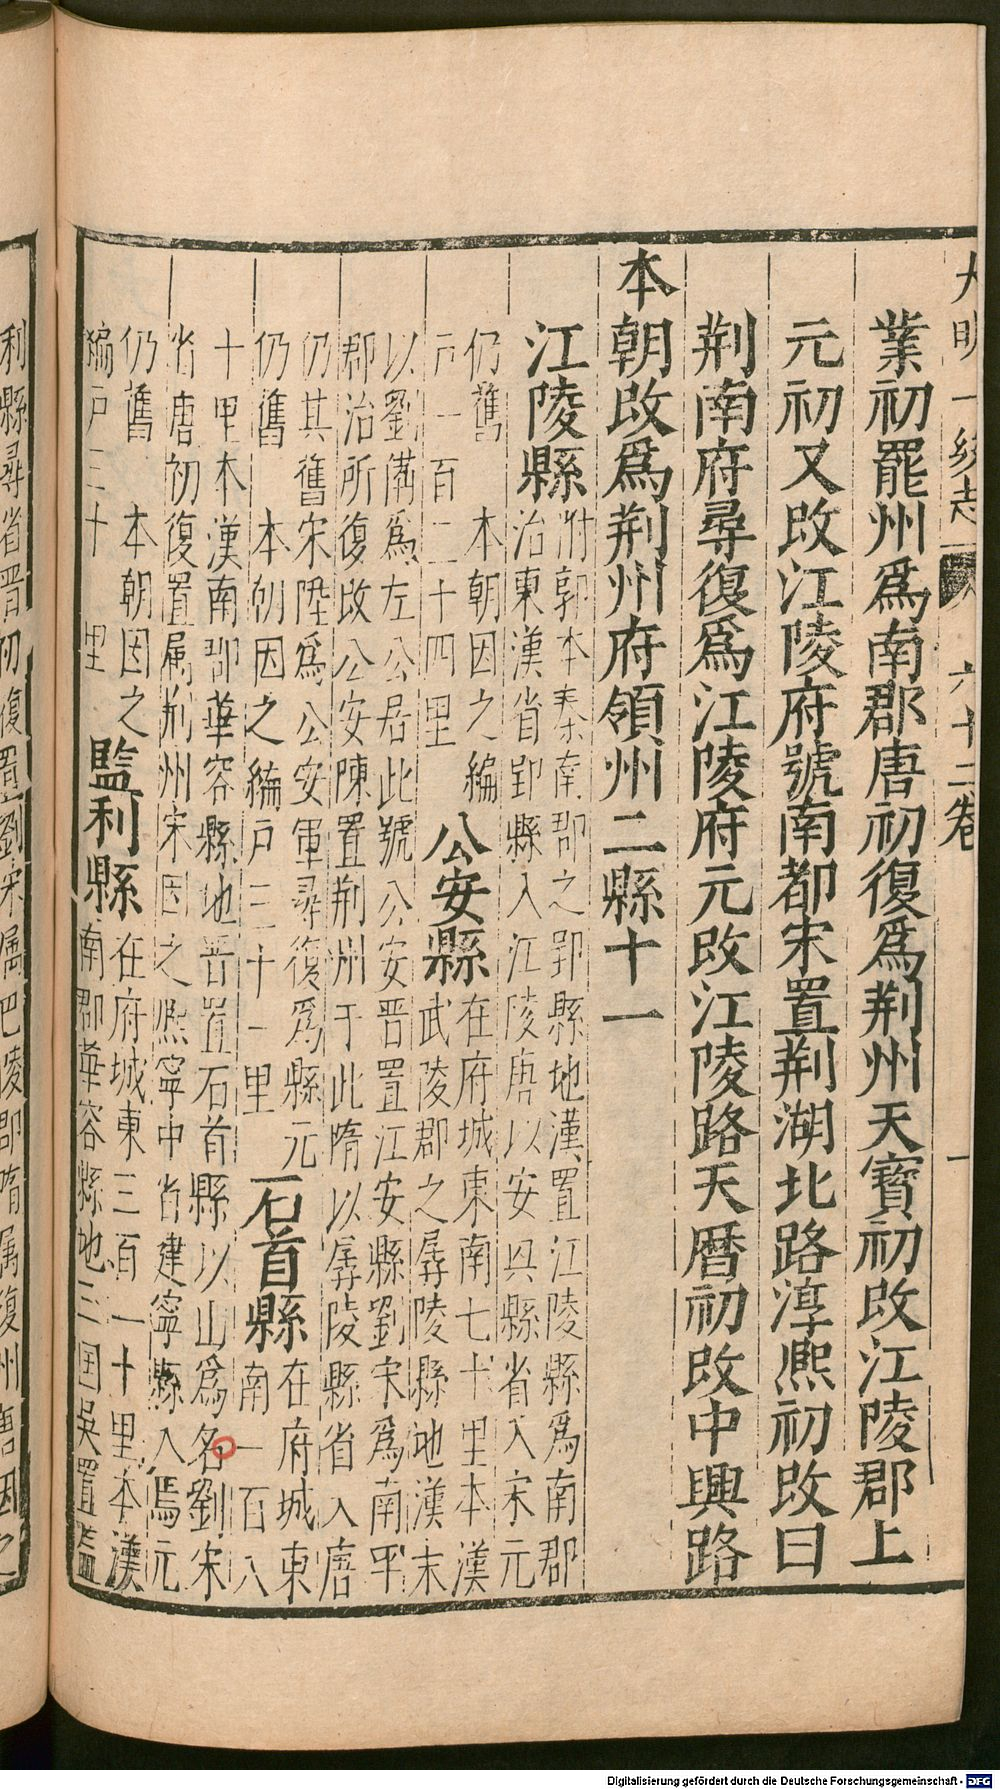 大明一統志 六十二卷 一
業初罷州爲南郡唐初復爲荆州天寶初改江陵郡上
元初又改江陵府號南都宋置荆湖北路淳熈初改曰
荆南府尋復爲江陵府元改江陵路天曆初改中興路
本朝改爲荆州府領州二縣十一
江陵縣
附郭本秦南郡之郢縣地漢置江陵縣爲南郡
治東漢省郢縣入江陵唐以安興縣省入宋元
仍舊 本朝因之編
戸一百二十四里
公安縣
在府城東南七十里本漢
武陵郡之孱陵縣地漢末
以劉備爲左公居此號公安晋置江安縣劉宋爲南平
郡治所復改公安陳置荆州于此隋以孱陵縣省入唐
仍其舊宋陞爲公安軍尋復爲縣元
仍舊 本朝因之編戸三十一里
石首縣
在府城東
南一百八
十里本漢南郡華容縣地晋置石首縣以山爲名劉宋
省唐初復置属荆州宋因之熈寧中省建寧縣入焉元
仍舊 本朝因之
編戸三十 里
監利縣
在府城東三百一十里本漢
南郡華容縣地三国吳置監
利縣尋省晋初復置劉宋属巴陵郡隋属復州唐因之
Digitalisierung gefördert durch die Deutsche Forschungsgemeinschaft - DFG